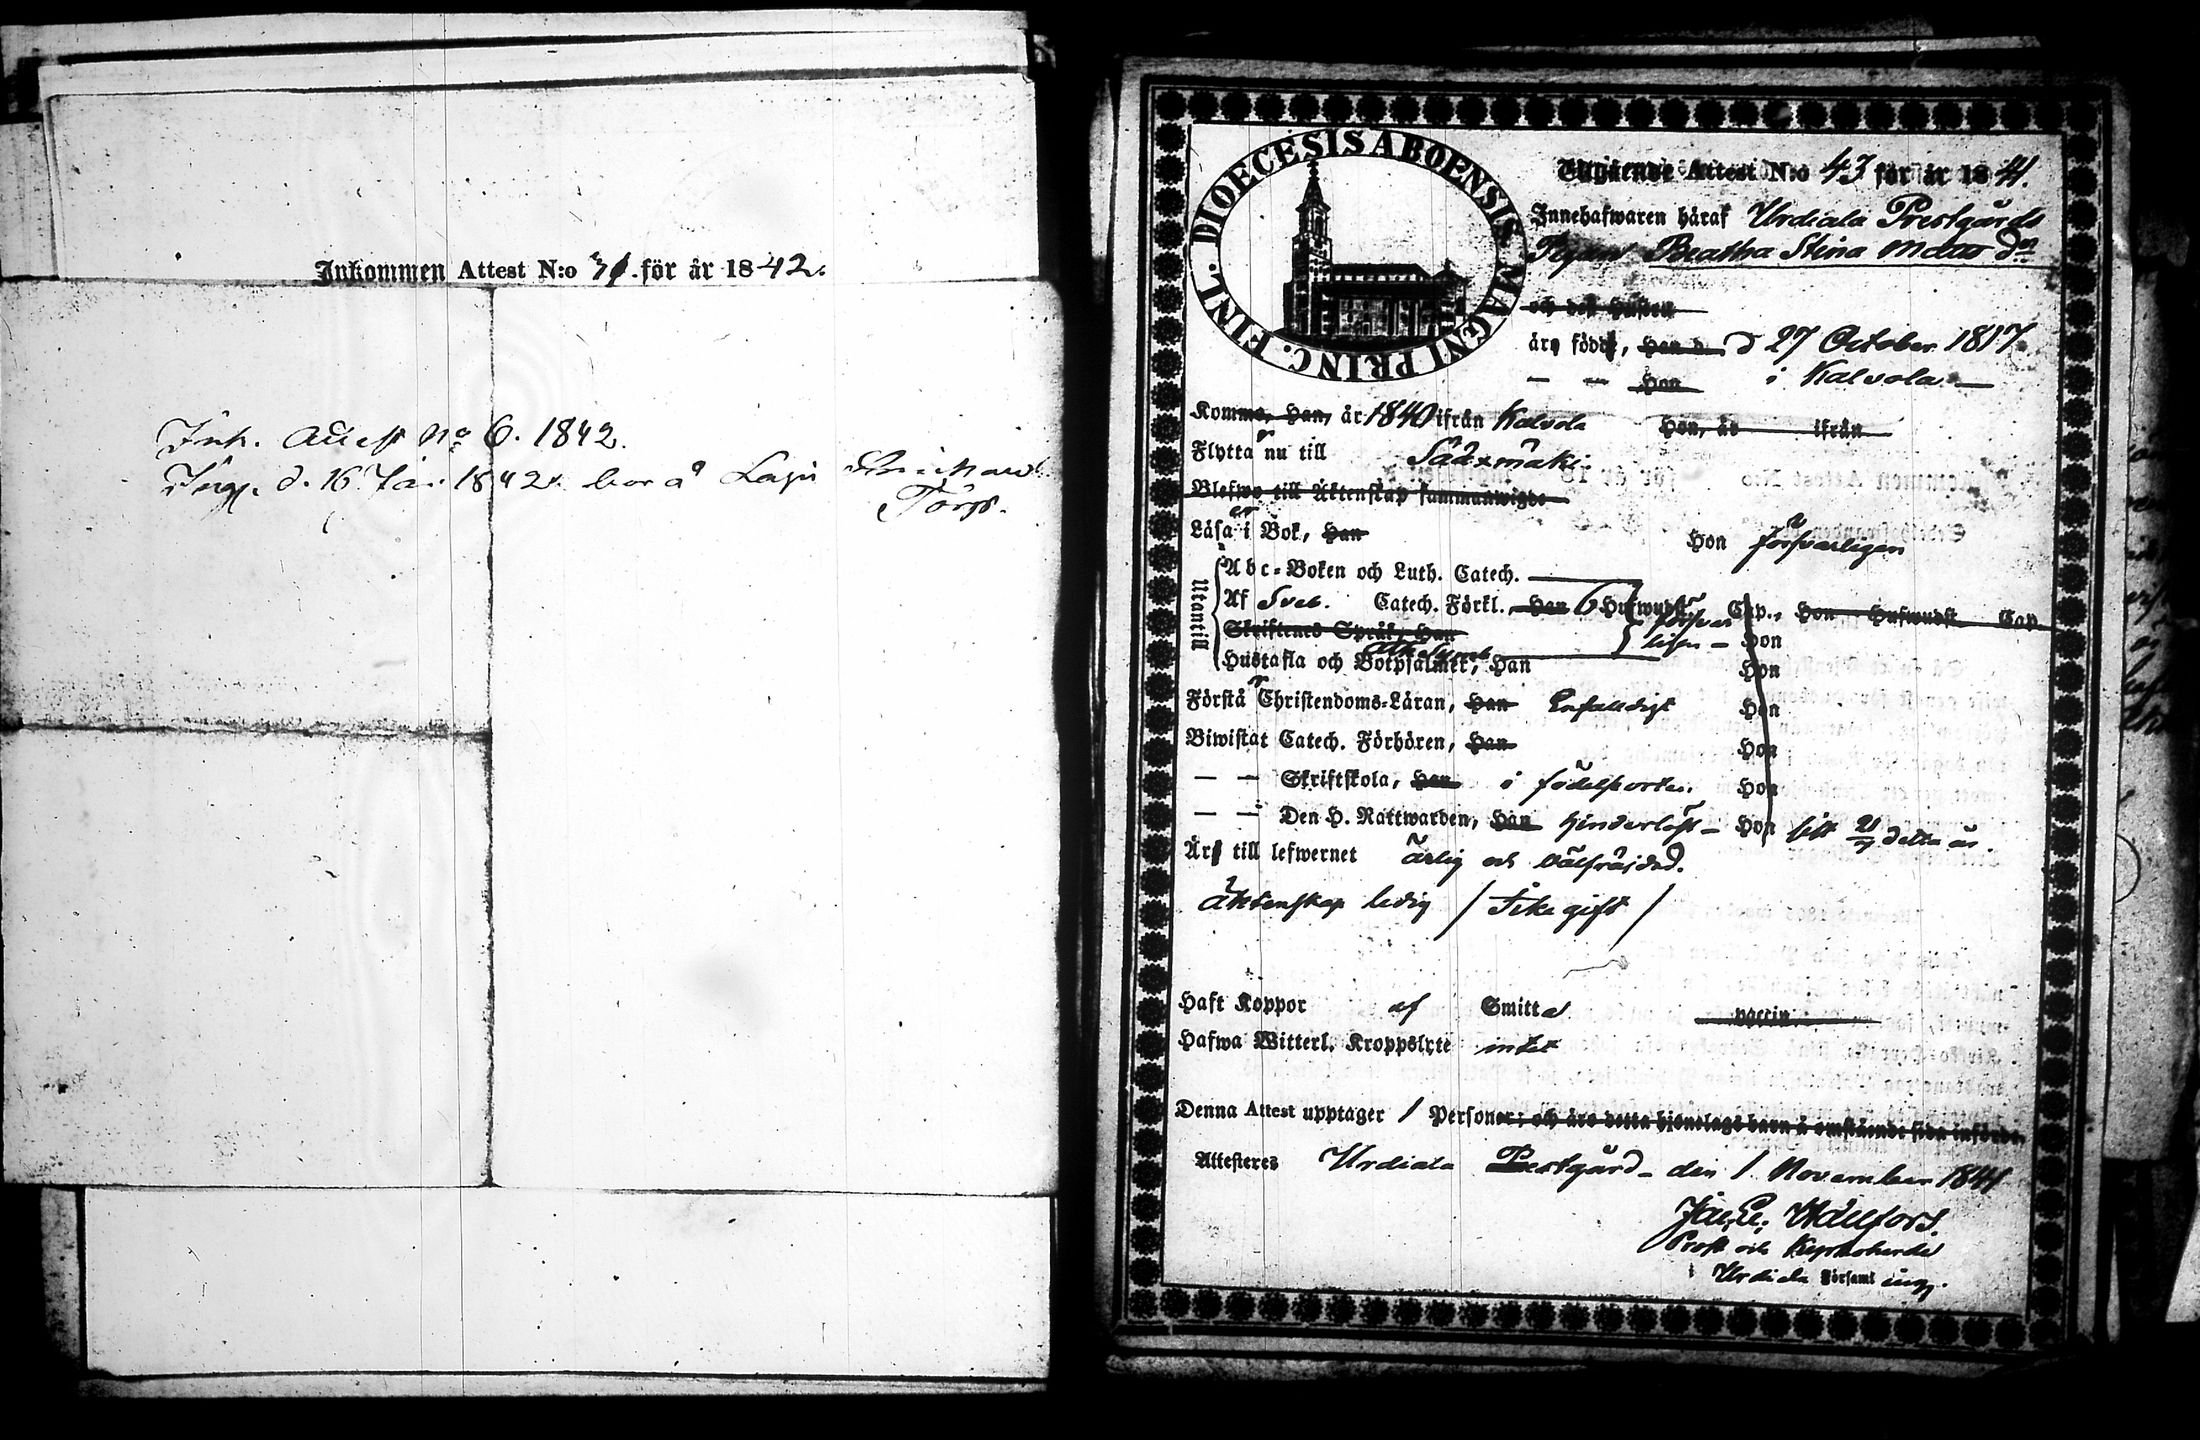 Inkommen Attest N:o för år 1842.
Ink. Attest No 6. 1842.
d. 16 Jan. 1842. bor å
Torp.
DIOECESIS ABOENSIS MAGNI PRINC. FINL.
Utgående Attest N:o 43 för år 1841.
Innehafwaren häraf Urdiala Prestgårds
Pigan Beatha Stina Matts dr
och dess Hustru
äro född, Han d. d 27 October 1817.
— — Hon i Kalvola —
Komme, Han, år 1840 ifrån Kalvola Hon, år ifrån
Flyttar nu till Sääxmäki.
Blefwo till Äktenskap sammanwigde
Läser i Bok, Han Hon försvarligen
Utantill
Abc-Boken och Luth. Catech.
Af Sveb. Catech. Förkl. Han 6 Hufwudst. Cap., Hon Hufwudst. Cap.
försvar
Skriftenes Språk, Han ligen — Hon
Ath. Symb.
Hustafla och Botpsalmer, Han Hon
Förstår Christendoms-Läran, Han Enfaldigt Hon
Biwistat Catech. Förhören, Han Hon
— — Skriftskola, Han i födelseorten. Hon
— — Den H. Nattwarden, Han Hinderlöst — Hon sist delta år.
Är till lefwernet ärlig och välfräjdad.
äktenskap ledig / Icke gift /
Haft Koppor af Smitta vaccin.
Hafwa Witterl. Kroppslyte intet
Denna Attest upptager 1 Personer; och äro detta hjonelags barn å omstående sida införde.
Attesteres Urdiala Prestgård — den 1. November 1841
Wällfors.
Prost och Kyrkoherde
i Urdiala Församling.